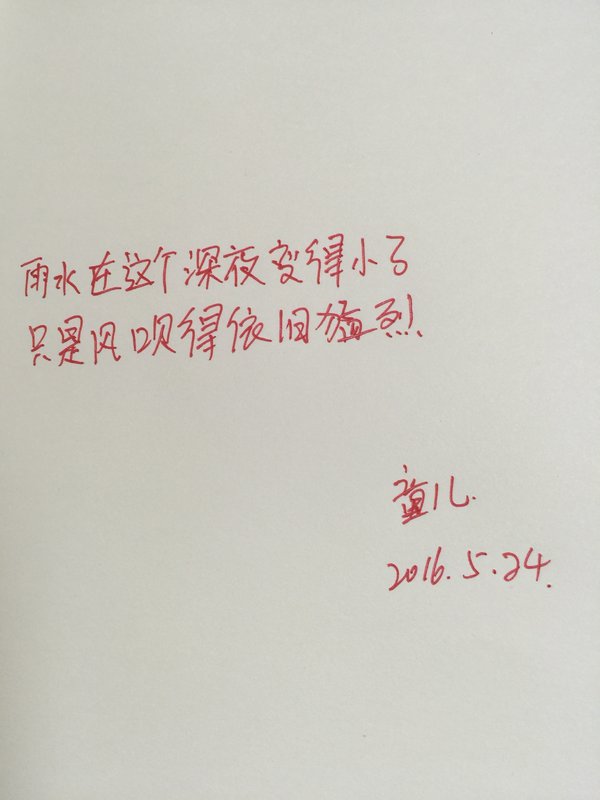 雨水在这个深夜变得小了
只是风吹得依旧猛烈
童儿.
2016.5.24.